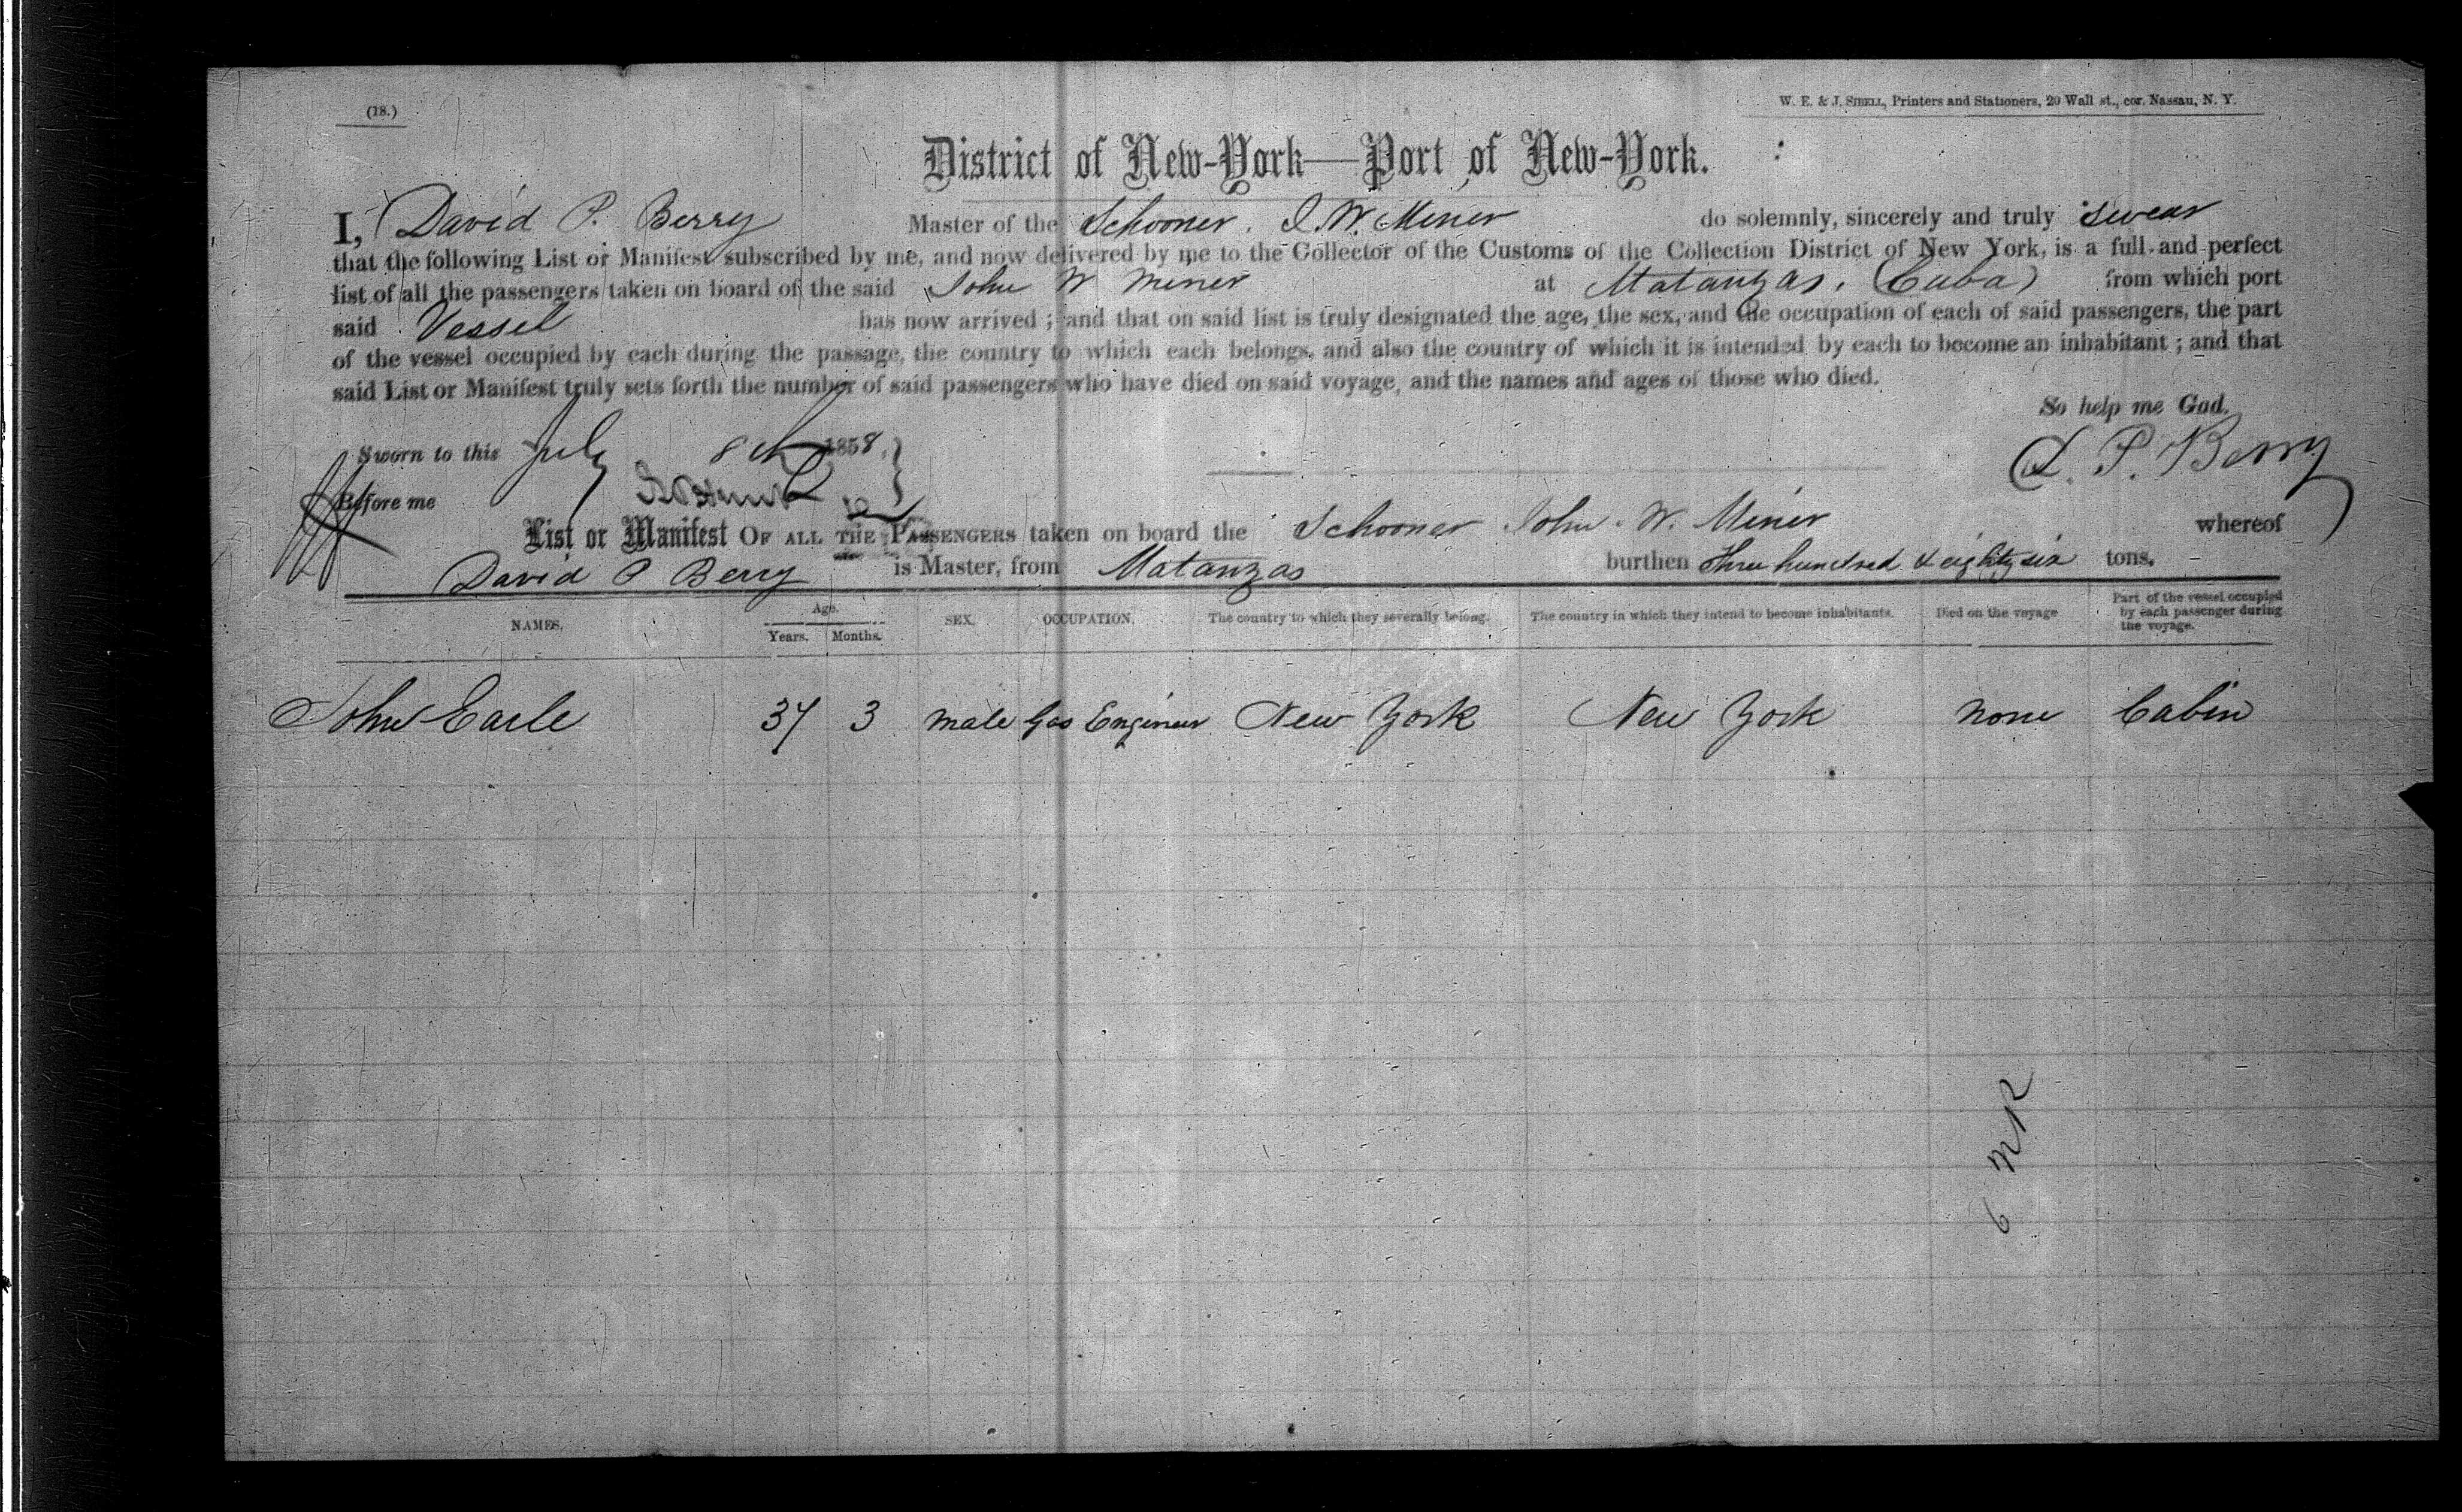 (18.)
W. E. & J. SIBELL, Printers and Stationers, 20 Wall st., cor. Nassau, N. Y.
District of New-York—Port of New-York.
I, David P. Berry Master of the Schooner. J. W. Miner do solemnly, sincerely and truly swear
that the following List or Manifest subscribed by me, and now delivered by me to the Collector of the Customs of the Collection District of New York, is a full and perfect
list of all the passengers taken on board of the said John W Miner at Matanzas, (Cuba) from which port
said Vessel has now arrived ; and that on said list is truly designated the age, the sex, and the occupation of each of said passengers, the part
of the vessel occupied by each during the passage, the country to which each belongs, and also the country of which it is intended by each to become an inhabitant ; and that
said List or Manifest truly sets forth the number of said passengers who have died on said voyage, and the names and ages of those who died.
So help me God.
Sworn to this July 8th 1858 D. P. Berry
Before me
List or Manifest OF ALL THE PASSENGERS taken on board the Schooner John. W. Miner whereof
David P Berry is Master, from Matanzas burthen Three hundred & eighty six tons.
NAMES. Age. Years. Months. SEX. OCCUPATION. The country to which they severally belong. The country in which they intend to become inhabitants. Died on the voyage Part of the vessel occupied by each passenger during the voyage.
John Earle 37 3 male Gas Engineer New York New York none Cabin